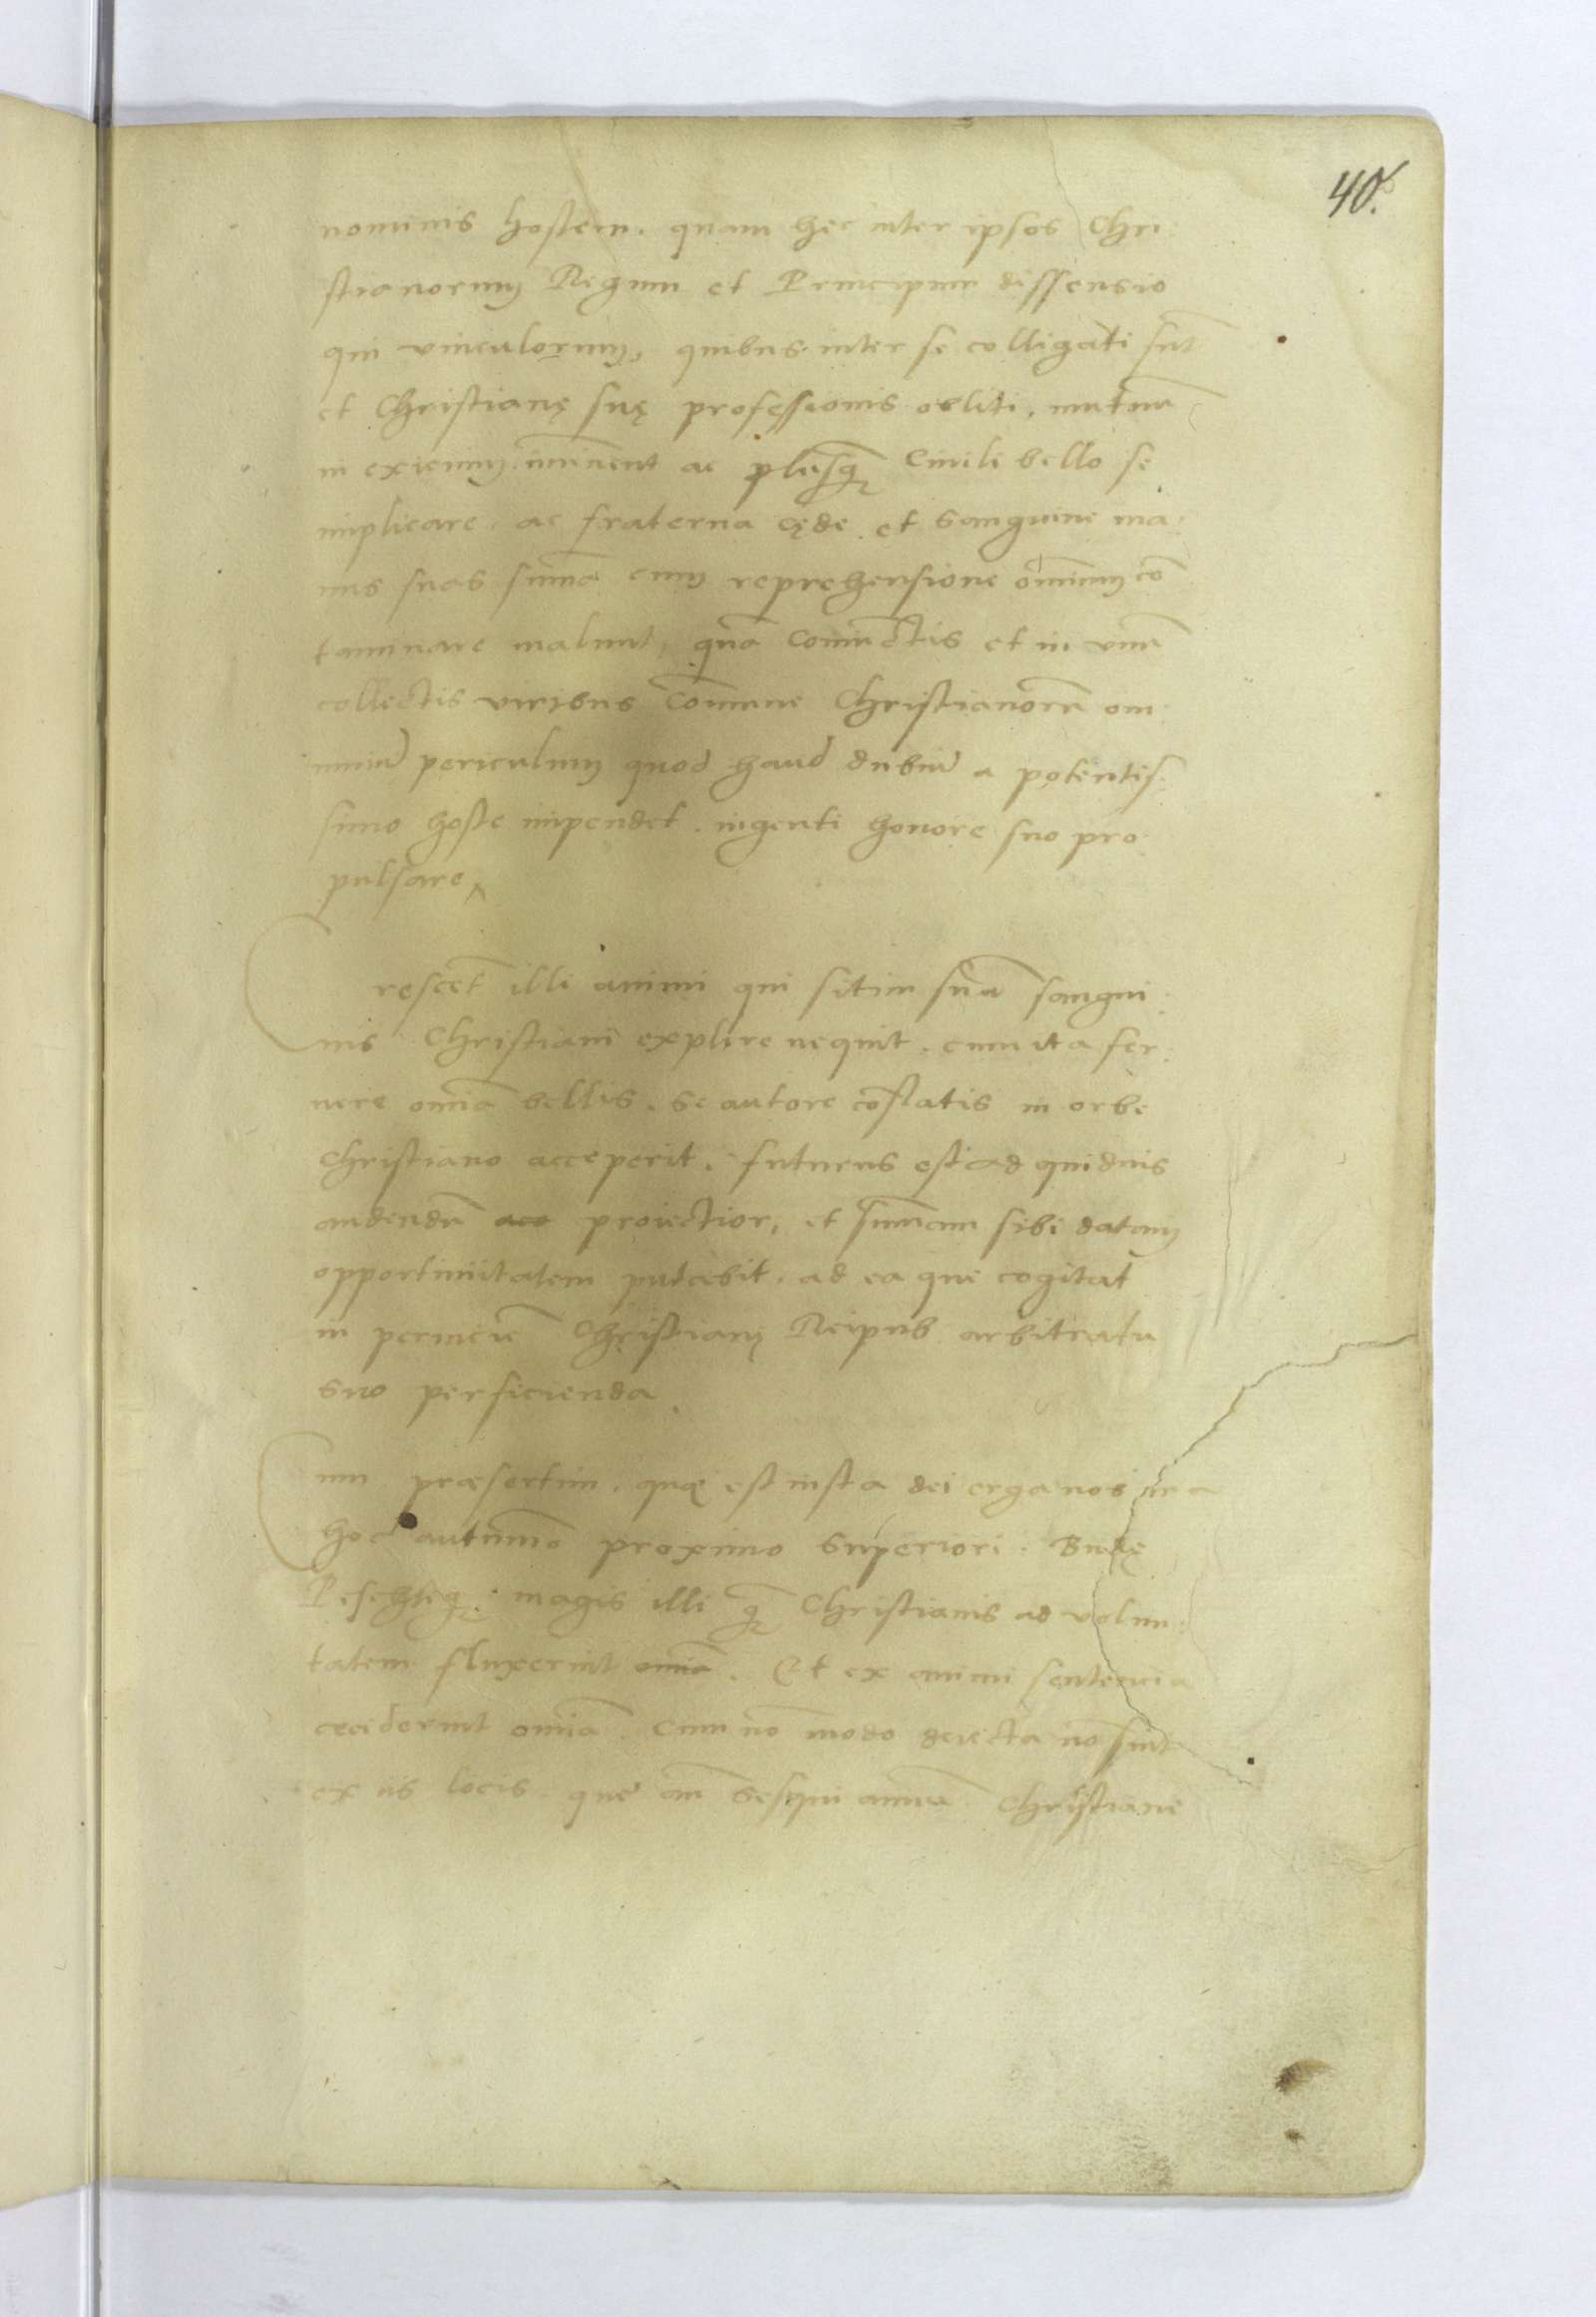 40.
nominis hostem. quam hec inter ipsos Chri:
stianorum Regum et Principum dissensio
qui vinculorum, quibus inter se colligati sūt
et Christianę suę professionis obliti, mutuū
in exicium iminent ac plusq̃ Ciuili bello se
implicare, ac fraterna cęde et sanguine ma:
nus suas suma cum reprehensione omnium cō
taminare malunt, quā coniunctis et in vnū
collectis viribus Comune Christianorū om:
nium periculum quod haud dubiū a potentis:
simo hoste impendet. ingenti honore suo pro
pulsare
Crescēt illi animi qui sitim suā sangui:
nis Christiani explere nequit. cum ita fer:
uere omīa bellis. se autore cōflatis in orbe
Christiano acceperit. futurus est ad quiduis
audendū proiectior, et sumam sibi datam
opportunitatem putabit. ad ea que cogitat
in perniciē Christianę Reipub arbitratu
suo perficienda.
Cum praesertim. quę est iusta dei erga nos ira
hoc autumno proximo superiori. Budę
Pesthteq̃. magis illi q̃ Christianis ad volun:
tatem fluxerint omīa. Et ex animi sentencia
ceciderint omīa. Cum nō modo deiecta nō sint
ex iis locis. que an sesqui annū Christiane